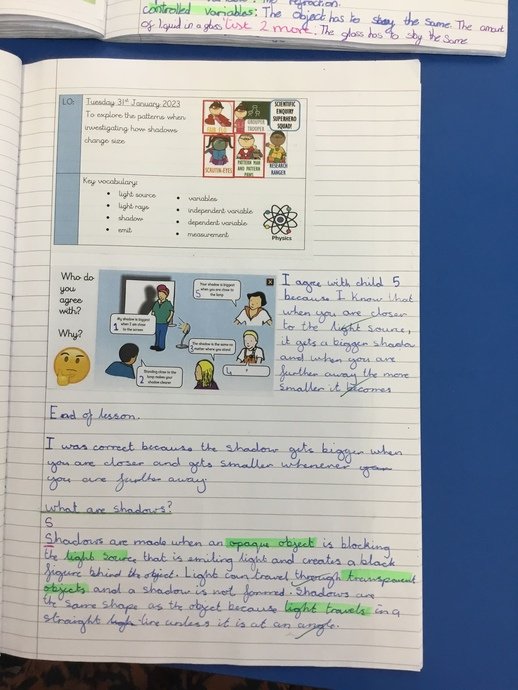 the refraction.
controlled variables: The Object has to stay the same. The amount
of liquid in a glass. Just 2 more: The glass has to stay the same
LO:
Tuesday 31st January 2023
To explore the patterns when
investigating how shadows
change size
FAIR FLO
GROUPER TROOPER
SCIENTIFIC
ENQUIRY
SUPERHERO
SQUAD!
SCRUTIN-EYES
PATTERN MAN
AND PATTERN
PAWS
RESEARCH
RANGER
Key vocabulary:
• light source
• light rays
• shadow
• emit
• variables
• independent variable
• dependent variable
• measurement
Physics
Who do
you
agree
with?
Why?
My shadow is biggest
when I am close
to the screen
1
Standing close to the
lamp makes your
shadow clearer
2
The shadow is the same no
matter where you stand
3
4
?
Your shadow is biggest
when you are close to
the lamp
5
X
I agree with child 5
because I know that
when you are closer
to the light source,
it gets a bigger shadow
and when you are
further away the more
smaller it becomes
End of lesson.
I was correct because the shadow gets bigger when
you are closer and gets smaller whenever your
you are further away
what are shadows?
S
Shadows are made when an opaque object is blocking
the light source that is emiling light and creates a black
figure behind the object. Light can travel through transparent
objects and a shadow is not formed. Shadows are
the same shape as the object because light travels in a
straight ligh line unless it is at an angle.